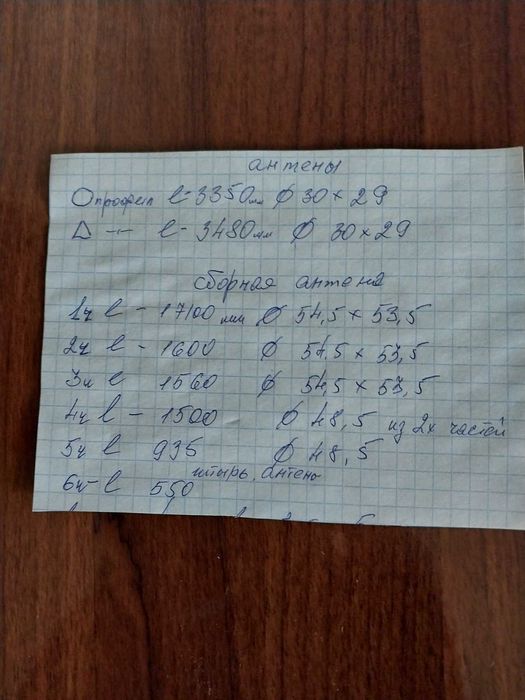 антены
О профил l-3350мм ∅ 30×29
Δ -"- l-3480мм ∅ 30×29
сборная антена
1ч l - 1700 мм ∅ 54,5 × 53,5
2ч l - 1600 ∅ 54,5 × 53,5
3ч l 1560 ∅ 54,5 × 53,5
4ч l - 1500 ∅ 48,5 из 2х частей
5ч l 935 ∅ 48,5
6ч- l 550 штырь, антены